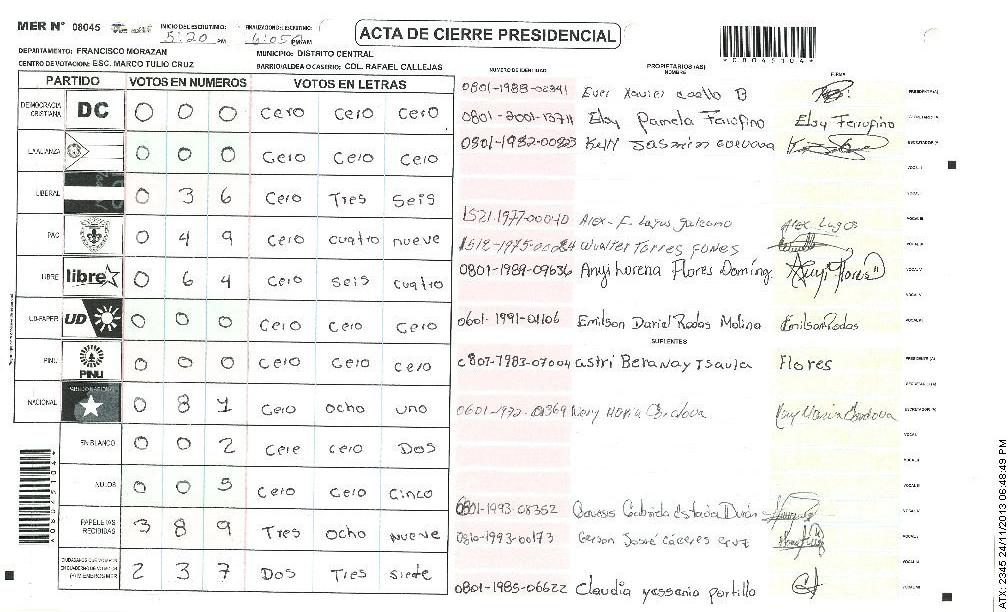 MER N° 08045
INICIO DEL ESCRUTINIO: 5:20 PM
FINALIZACION DEL ESCRUTINIO: 6:05 PM/AM
ACTA DE CIERRE PRESIDENCIAL
*08045104*
DEPARTAMENTO: FRANCISCO MORAZAN
MUNICIPIO: DISTRITO CENTRAL
CENTRO DE VOTACION: ESC. MARCO TULIO CRUZ
BARRIO/ALDEA O CASERIO: COL. RAFAEL CALLEJAS
PARTIDO VOTOS EN NUMEROS VOTOS EN LETRAS
DEMOCRACIA CRISTIANA DC 0 0 0 Cero Cero Cero
LA ALIANZA 0 0 0 Cero Cero Cero
LIBERAL 0 3 6 Cero Tres Seis
PAC 0 4 9 Cero cuatro nueve
LIBRE libre 0 6 4 Cero Seis cuatro
UD-FAPER UD 0 0 0 Cero Cero Cero
PINU PINU 0 0 0 Cero Cero Cero
NACIONAL 0 8 1 Cero ocho uno
EN BLANCO 0 0 2 Cere cero Dos
NULOS 0 0 5 Cero Cero Cinco
PAPELETAS RECIBIDAS 3 8 9 Tres ocho nueve
2 3 7 Dos Tres siete
*08045104*
NUMERO DE IDENTIDAD PROPIETARIOS (AS) NOMBRE FIRMA
Ever Xavier B PRESIDENTE(A)
Eloy Pamela Ferrufino Eloy Ferrufino
VOCAL I
1521-1977-00070 Alex F. Lagos Galeano Alex Lagos
Walter Torres Funes
0801-1989-09636 Anyi Lorena Flores Doming. Anyi Flores
0601-1991-01106 Emilson Dariel Rodas Molina Emilson Rodas
SUPLENTES
0807-1983-07004 Flores PRESIDENTE (A)
Nery Maria Cordova SECRETARIO (A)
0801-1993-08352 Genesis Gabriela Estrada Durón
0816-1993-00173 Gerson Josué Cáceres Cruz
0801-1985-06622 Claudia yessenia portillo
ATX-2345 24/11/2013 06:48:49 PM